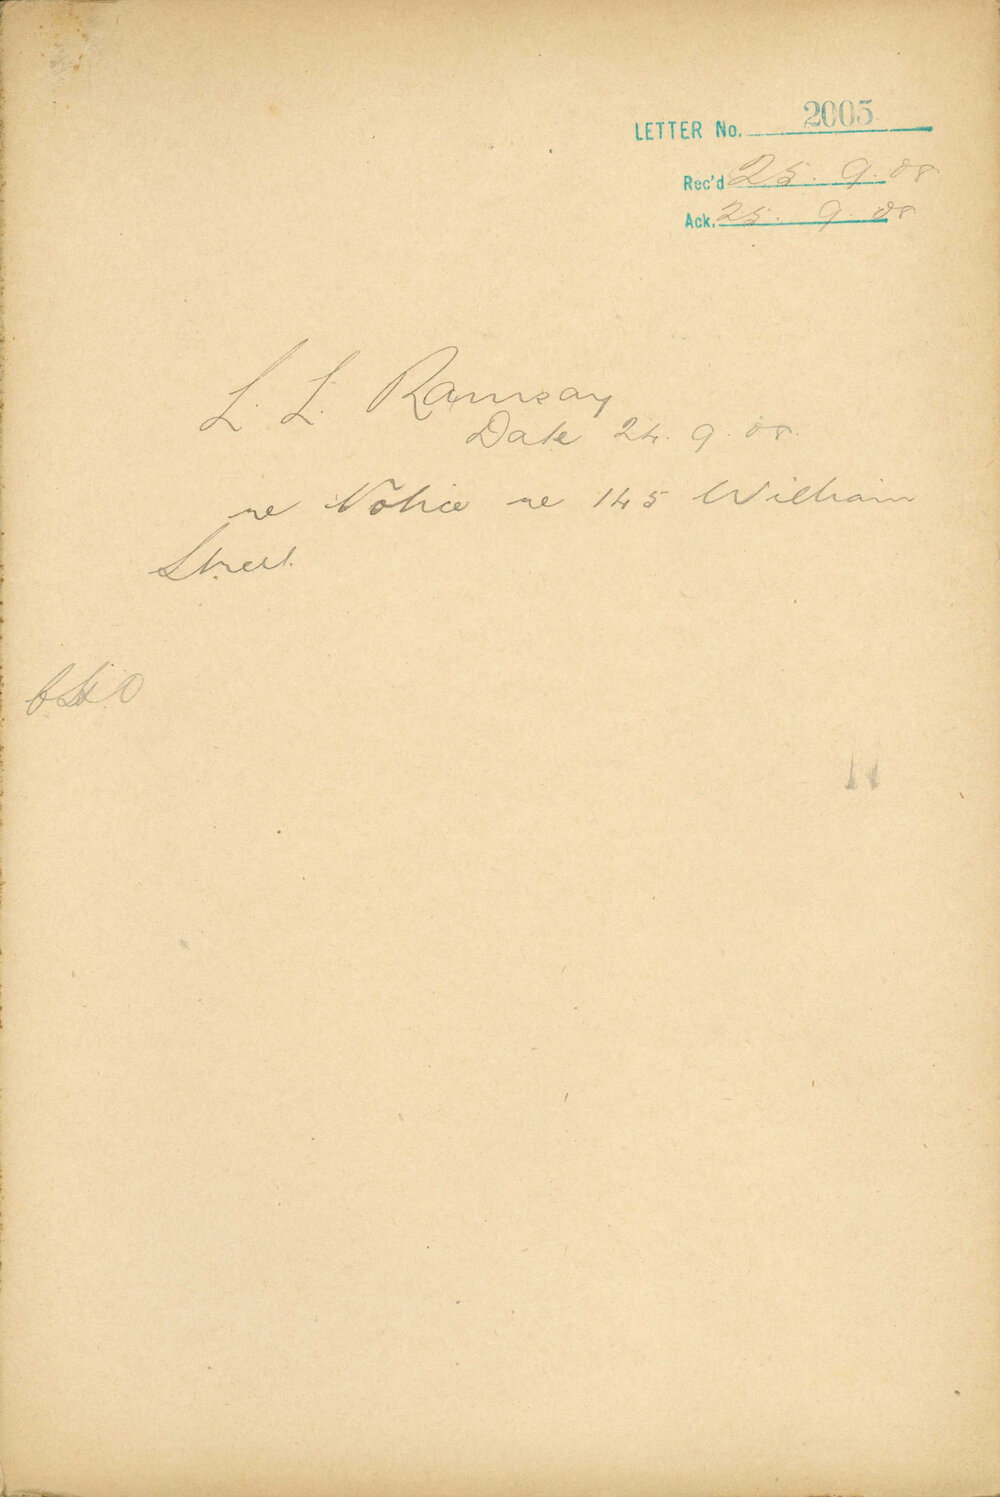 LETTER No. 2005
Rec'd 25. 9. 08
Ack. 25. 9. 08
L. L. Ramsay
Date 24. 9. 08.
re Notice re 145 William
Street.